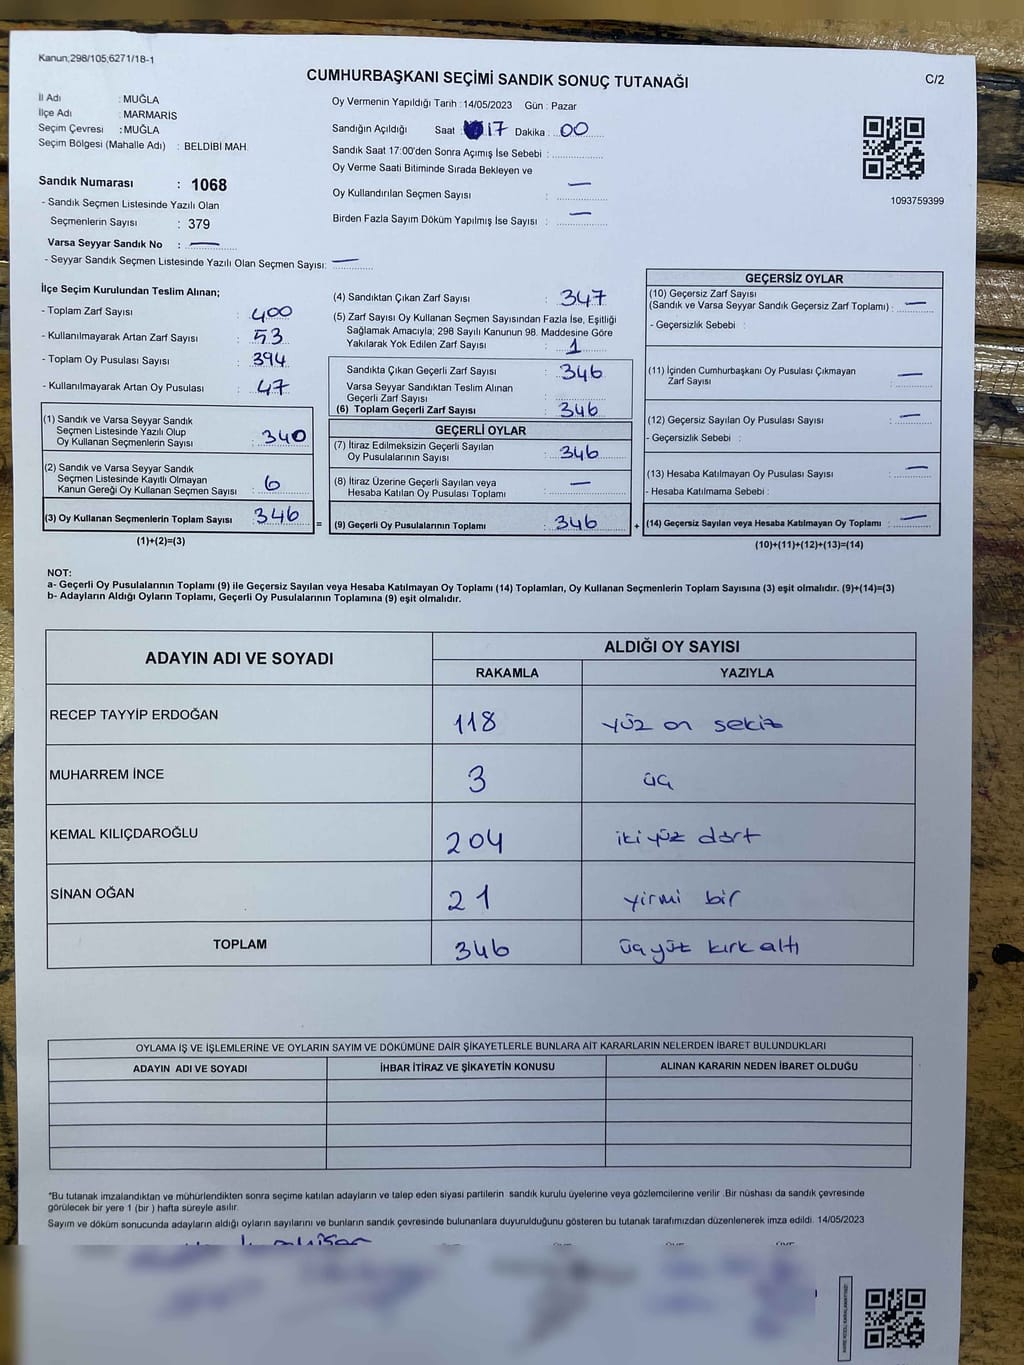 Kanun;298/105;6271/18-1
CUMHURBAŞKANI SEÇİMİ SANDIK SONUÇ TUTANAĞI
C/2
İl Adı : MUĞLA
İlçe Adı : MARMARİS
Seçim Çevresi : MUĞLA
Seçim Bölgesi (Mahalle Adı) : BELDİBİ MAH.
Sandık Numarası : 1068
- Sandık Seçmen Listesinde Yazılı Olan
Seçmenlerin Sayısı : 379
Varsa Seyyar Sandık No : —
- Seyyar Sandık Seçmen Listesinde Yazılı Olan Seçmen Sayısı: —
Oy Vermenin Yapıldığı Tarih : 14/05/2023 Gün : Pazar
Sandığın Açıldığı Saat : 17 Dakika : 00
Sandık Saat 17:00'den Sonra Açımış İse Sebebi :
Oy Verme Saati Bitiminde Sırada Bekleyen ve
Oy Kullandırılan Seçmen Sayısı : —
Birden Fazla Sayım Döküm Yapılmış İse Sayısı : —
1093759399
İlçe Seçim Kurulundan Teslim Alınan;
- Toplam Zarf Sayısı : 400
- Kullanılmayarak Artan Zarf Sayısı : 53
- Toplam Oy Pusulası Sayısı : 394
- Kullanılmayarak Artan Oy Pusulası : 47
(1) Sandık ve Varsa Seyyar Sandık
Seçmen Listesinde Yazılı Olup
Oy Kullanan Seçmenlerin Sayısı : 340
(2) Sandık ve Varsa Seyyar Sandık
Seçmen Listesinde Kayıtlı Olmayan
Kanun Gereği Oy Kullanan Seçmen Sayısı : 6
(3) Oy Kullanan Seçmenlerin Toplam Sayısı : 346 =
(1)+(2)=(3)
(4) Sandıktan Çıkan Zarf Sayısı : 347
(5) Zarf Sayısı Oy Kullanan Seçmen Sayısından Fazla İse, Eşitliği
Sağlamak Amacıyla; 298 Sayılı Kanunun 98. Maddesine Göre
Yakılarak Yok Edilen Zarf Sayısı : 1
Sandıkta Çıkan Geçerli Zarf Sayısı : 346
Varsa Seyyar Sandıktan Teslim Alınan
Geçerli Zarf Sayısı :
(6) Toplam Geçerli Zarf Sayısı : 346
GEÇERLİ OYLAR
(7) İtiraz Edilmeksizin Geçerli Sayılan
Oy Pusulalarının Sayısı : 346
(8) İtiraz Üzerine Geçerli Sayılan veya
Hesaba Katılan Oy Pusulası Toplamı : —
(9) Geçerli Oy Pusulalarının Toplamı : 346 +
GEÇERSİZ OYLAR
(10) Geçersiz Zarf Sayısı
(Sandık ve Varsa Seyyar Sandık Geçersiz Zarf Toplamı) : —
- Geçersizlik Sebebi :
(11) İçinden Cumhurbaşkanı Oy Pusulası Çıkmayan
Zarf Sayısı : —
(12) Geçersiz Sayılan Oy Pusulası Sayısı : —
- Geçersizlik Sebebi :
(13) Hesaba Katılmayan Oy Pusulası Sayısı : —
- Hesaba Katılmama Sebebi :
(14) Geçersiz Sayılan veya Hesaba Katılmayan Oy Toplamı : —
(10)+(11)+(12)+(13)=(14)
NOT:
a- Geçerli Oy Pusulalarının Toplamı (9) ile Geçersiz Sayılan veya Hesaba Katılmayan Oy Toplamı (14) Toplamları, Oy Kullanan Seçmenlerin Toplam Sayısına (3) eşit olmalıdır. (9)+(14)=(3)
b- Adayların Aldığı Oyların Toplamı, Geçerli Oy Pusulalarının Toplamına (9) eşit olmalıdır.
ADAYIN ADI VE SOYADI
ALDIĞI OY SAYISI
RAKAMLA YAZIYLA
RECEP TAYYİP ERDOĞAN 118 yüz on sekiz
MUHARREM İNCE 3 üç
KEMAL KILIÇDAROĞLU 204 iki yüz dört
SİNAN OĞAN 21 yirmi bir
TOPLAM 346 üç yüz kırk altı
OYLAMA İŞ VE İŞLEMLERİNE VE OYLARIN SAYIM VE DÖKÜMÜNE DAİR ŞİKAYETLERLE BUNLARA AİT KARARLARIN NELERDEN İBARET BULUNDUKLARI
ADAYIN ADI VE SOYADI İHBAR İTİRAZ VE ŞİKAYETİN KONUSU ALINAN KARARIN NEDEN İBARET OLDUĞU
*Bu tutanak imzalandıktan ve mühürlendikten sonra seçime katılan adayların ve talep eden siyasi partilerin sandık kurulu üyelerine veya gözlemcilerine verilir. Bir nüshası da sandık çevresinde
görülecek bir yere 1 (bir ) hafta süreyle asılır.
Sayım ve döküm sonucunda adayların aldığı oyların sayılarını ve bunların sandık çevresinde bulunanlara duyurulduğunu gösteren bu tutanak tarafımızdan düzenlenerek imza edildi. 14/05/2023